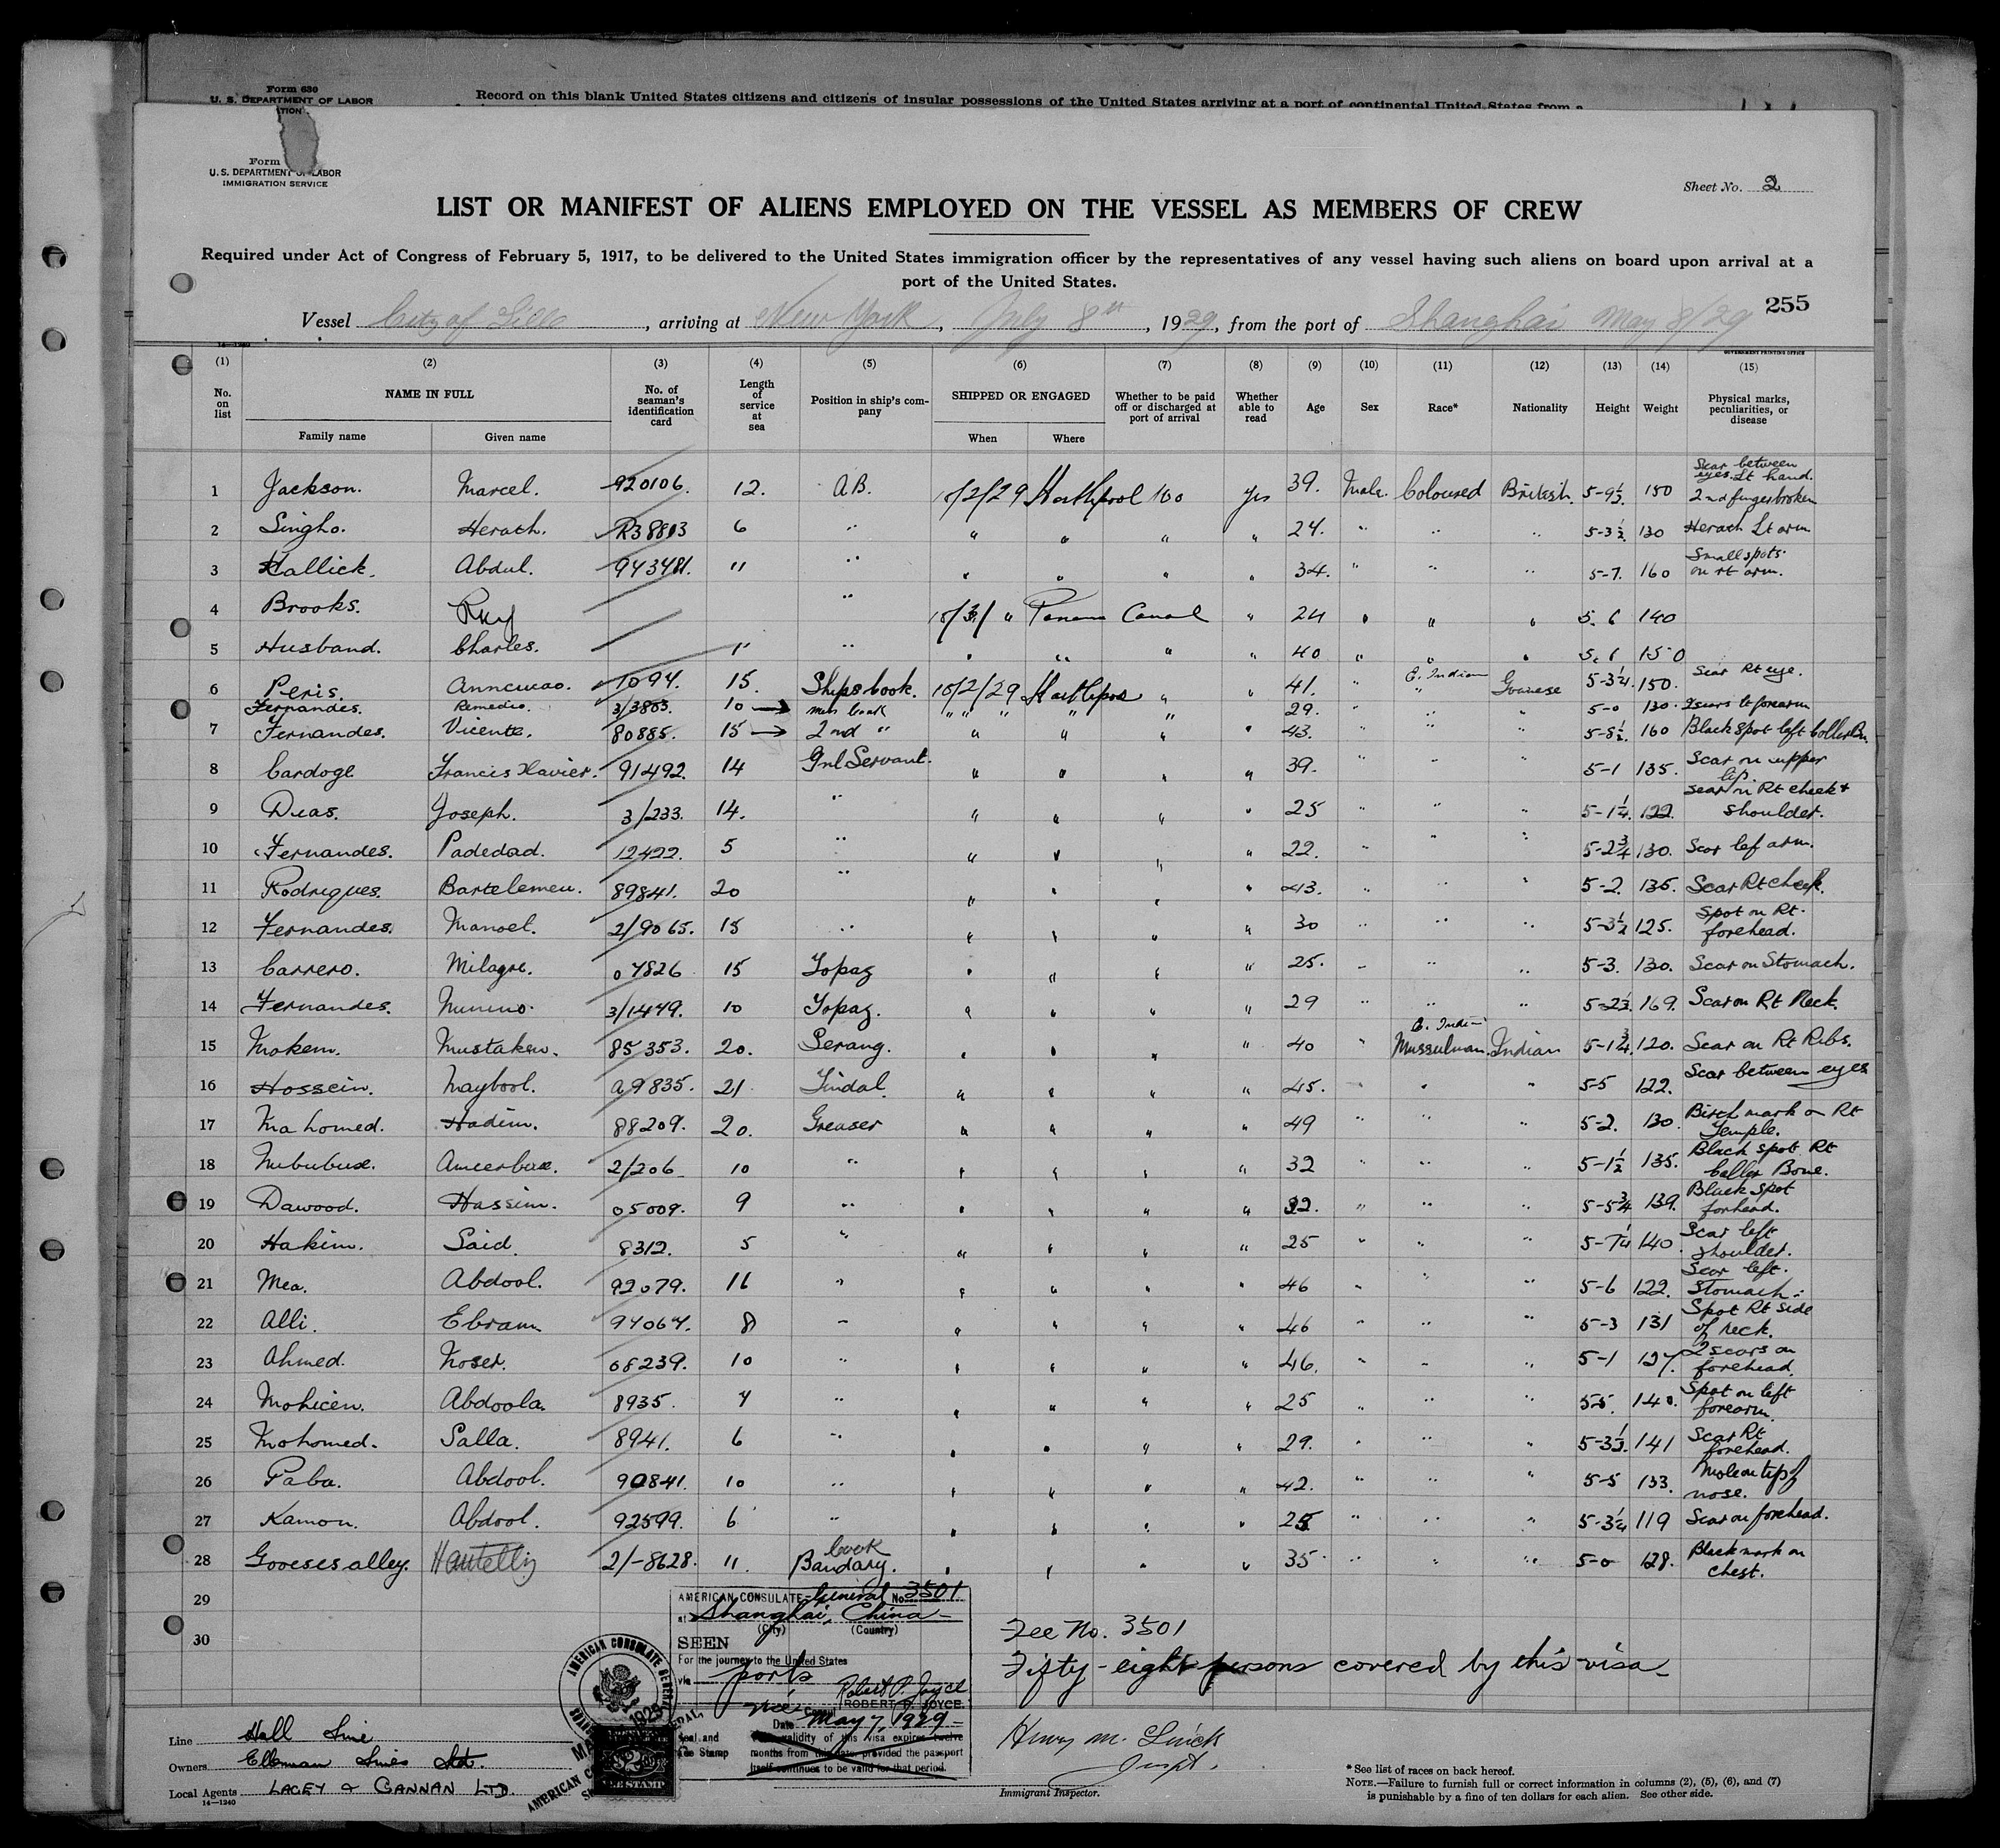 Form 630
U. S. DEPARTMENT OF LABOR
Record on this blank United States citizens and citizens of insular possessions of the United States arriving at a port of continental United States from a
Form
U. S. DEPARTMENT OF LABOR
IMMIGRATION SERVICE
Sheet No. 2
LIST OR MANIFEST OF ALIENS EMPLOYED ON THE VESSEL AS MEMBERS OF CREW
Required under Act of Congress of February 5, 1917, to be delivered to the United States immigration officer by the representatives of any vessel having such aliens on board upon arrival at a
port of the United States.
255
Vessel City of Lille, arriving at New York, July 8th, 1929, from the port of Shanghai May 8/29
14-1240
GOVERNMENT PRINTING OFFICE
(1) (2) (3) (4) (5) (6) (7) (8) (9) (10) (11) (12) (13) (14) (15)
No. on list NAME IN FULL No. of seaman's identification card Length of service at sea Position in ship's company SHIPPED OR ENGAGED Whether to be paid off or discharged at port of arrival Whether able to read Age Sex Race* Nationality Height Weight Physical marks, peculiarities, or disease
Family name Given name When Where
1 Jackson. Marcel. 920106. 12. A.B. 10/2/29 Hartlepool No Yes 39. Male. Coloured British. 5-9½ 150 Scar between eyes. Lt hand. 2nd finger broken
2 Singho. Herath. R38803 6 " " " " " 24. " " " 5-3½ 130 Herath Lt arm
3 Kallick. Abdul. 943481. 11 " " " " " 34. " " " 5-7. 160 Small spots on rt arm.
4 Brooks. Ray " 10/3/ " Panama Canal " 24 " " " 5. 6 140
5 Husband. Charles. 11 " " " " " 40 " " " 5. 6 150
6 Peris. Anncucao. 1094. 15. Ships cook. 10/2/29 Hartlepool " " 41. " E. Indian Goanese 5-3¼. 150. Scar Rt eye.
Fernandes. Remedio. 3/3803. 10 → mess cook " " " " 29. " " " 5-0 130. 2 scars lt forearm
7 Fernandes. Vicente. 80885. 15 → 2nd " " " " " 43. " " " 5-8½ 160 Black spot left Coller Bn.
8 Cardoge Francis Xavier. 91492. 14 Gnl Servant. " " " " 39. " " " 5-1 135. Scar on upper lip.
9 Dias. Joseph. 3/233. 14. " " " " " 25 " " " 5-1¼. 122. Scar on Rt cheek & shoulder.
10 Fernandes. Padedad. 12422. 5 " " " " " 22. " " " 5-2¾ 130. Scar lef arm.
11 Rodrigues. Bartelemeu. 89841. 20 " " " " " 43. " " " 5-2. 135. Scar Rt cheek.
12 Fernandes. Manoel. 2/9065. 15 " " " " " 30 " " " 5-3½ 125. Spot on Rt. forehead.
13 Carrero. Milagre. 07826 15 Topaz " " " " 25. " " " 5-3. 130. Scar on Stomach.
14 Fernandes. 3/1479. 10 Topaz. " " " " 29 " " " 169. Scar on Rt Neck.
15 Mokem. Mustaken. 85353. 20. Serang. " " " " 40 " Mussulman. Indian 5-1¾. 120. Scar on Rt Ribs.
16 Hossein. Maybool. 21 Tindal. " " " " 45. " " " 5-5 122. Scar between eyes
17 Mahomed. Hadim. 88209. 20. Greaser " " " " 49 " " " 5-2. 130. Birth mark on Rt Temple.
18 Nububux. Ameerbux. 2/206 10 " " " " " 32 " " " 5-1½ 135. Black spot Rt Coller Bone.
19 Dawood. Hassim. 05009. 9 " " " " " 32. " " " 5-5¾ 139. Black spot forhead.
20 Hakim. Said. 8312. 5 " " " " " 25 " " " 5-7¼ 140. Scar left shoulder.
21 Mea. Abdool. 92079. 16 " " " " " 46 " " " 5-6 122. Scar left. Stomach.
22 Alli. Ebram 94064. 8 " " " " " 46 " " " 5-3 131 Spot Rt side of neck.
23 Ahmed. Noser. 08239. 10 " " " " " 46. " " " 5-1 127. 2 scars on forehead.
24 Mohicen. Abdoola. 8935. 7 " " " " " 25 " " " 5-5. 140. Spot on left forearm.
25 Mohomed. Salla. 8941. 6 " " " " " 29. " " " 5-3½. 141 Scar Rt forehead.
26 Paba. Abdool. 90841. 10 " " " " " 42. " " " 5-5 133. Mole on tip of nose.
27 Kamon. Abdool. 92599. 6 " " " " " 25 " " " 5-3¼ 119 Scar on forehead.
28 Gooesesalley. 2/-8628. 11. Cook Bandary. " " " " 35. " " " 5-0 128. Black mark on chest.
29
30
AMERICAN CONSULATE-General No. 3501
at Shanghai, China
(City) (Country)
SEEN
For the journey to the United States
via ports
Robert P. Joyce
ROBERT P. JOYCE.
Vice Consul
Date May 7, 1929
Seal and Fee Stamp
The validity of this visa expires twelve
months from this date, provided the passport
itself continues to be valid for that period.
Fee No. 3501
Fifty-eight persons covered by this visa
AMERICAN CONSULATE GENERAL
Line Hall Line
Owners Ellerman Lines Ltd.
Local Agents LACEY & CANNAN LTD.
14-1240
Immigrant Inspector.
* See list of races on back hereof.
NOTE.—Failure to furnish full or correct information in columns (2), (5), (6), and (7)
is punishable by a fine of ten dollars for each alien. See other side.